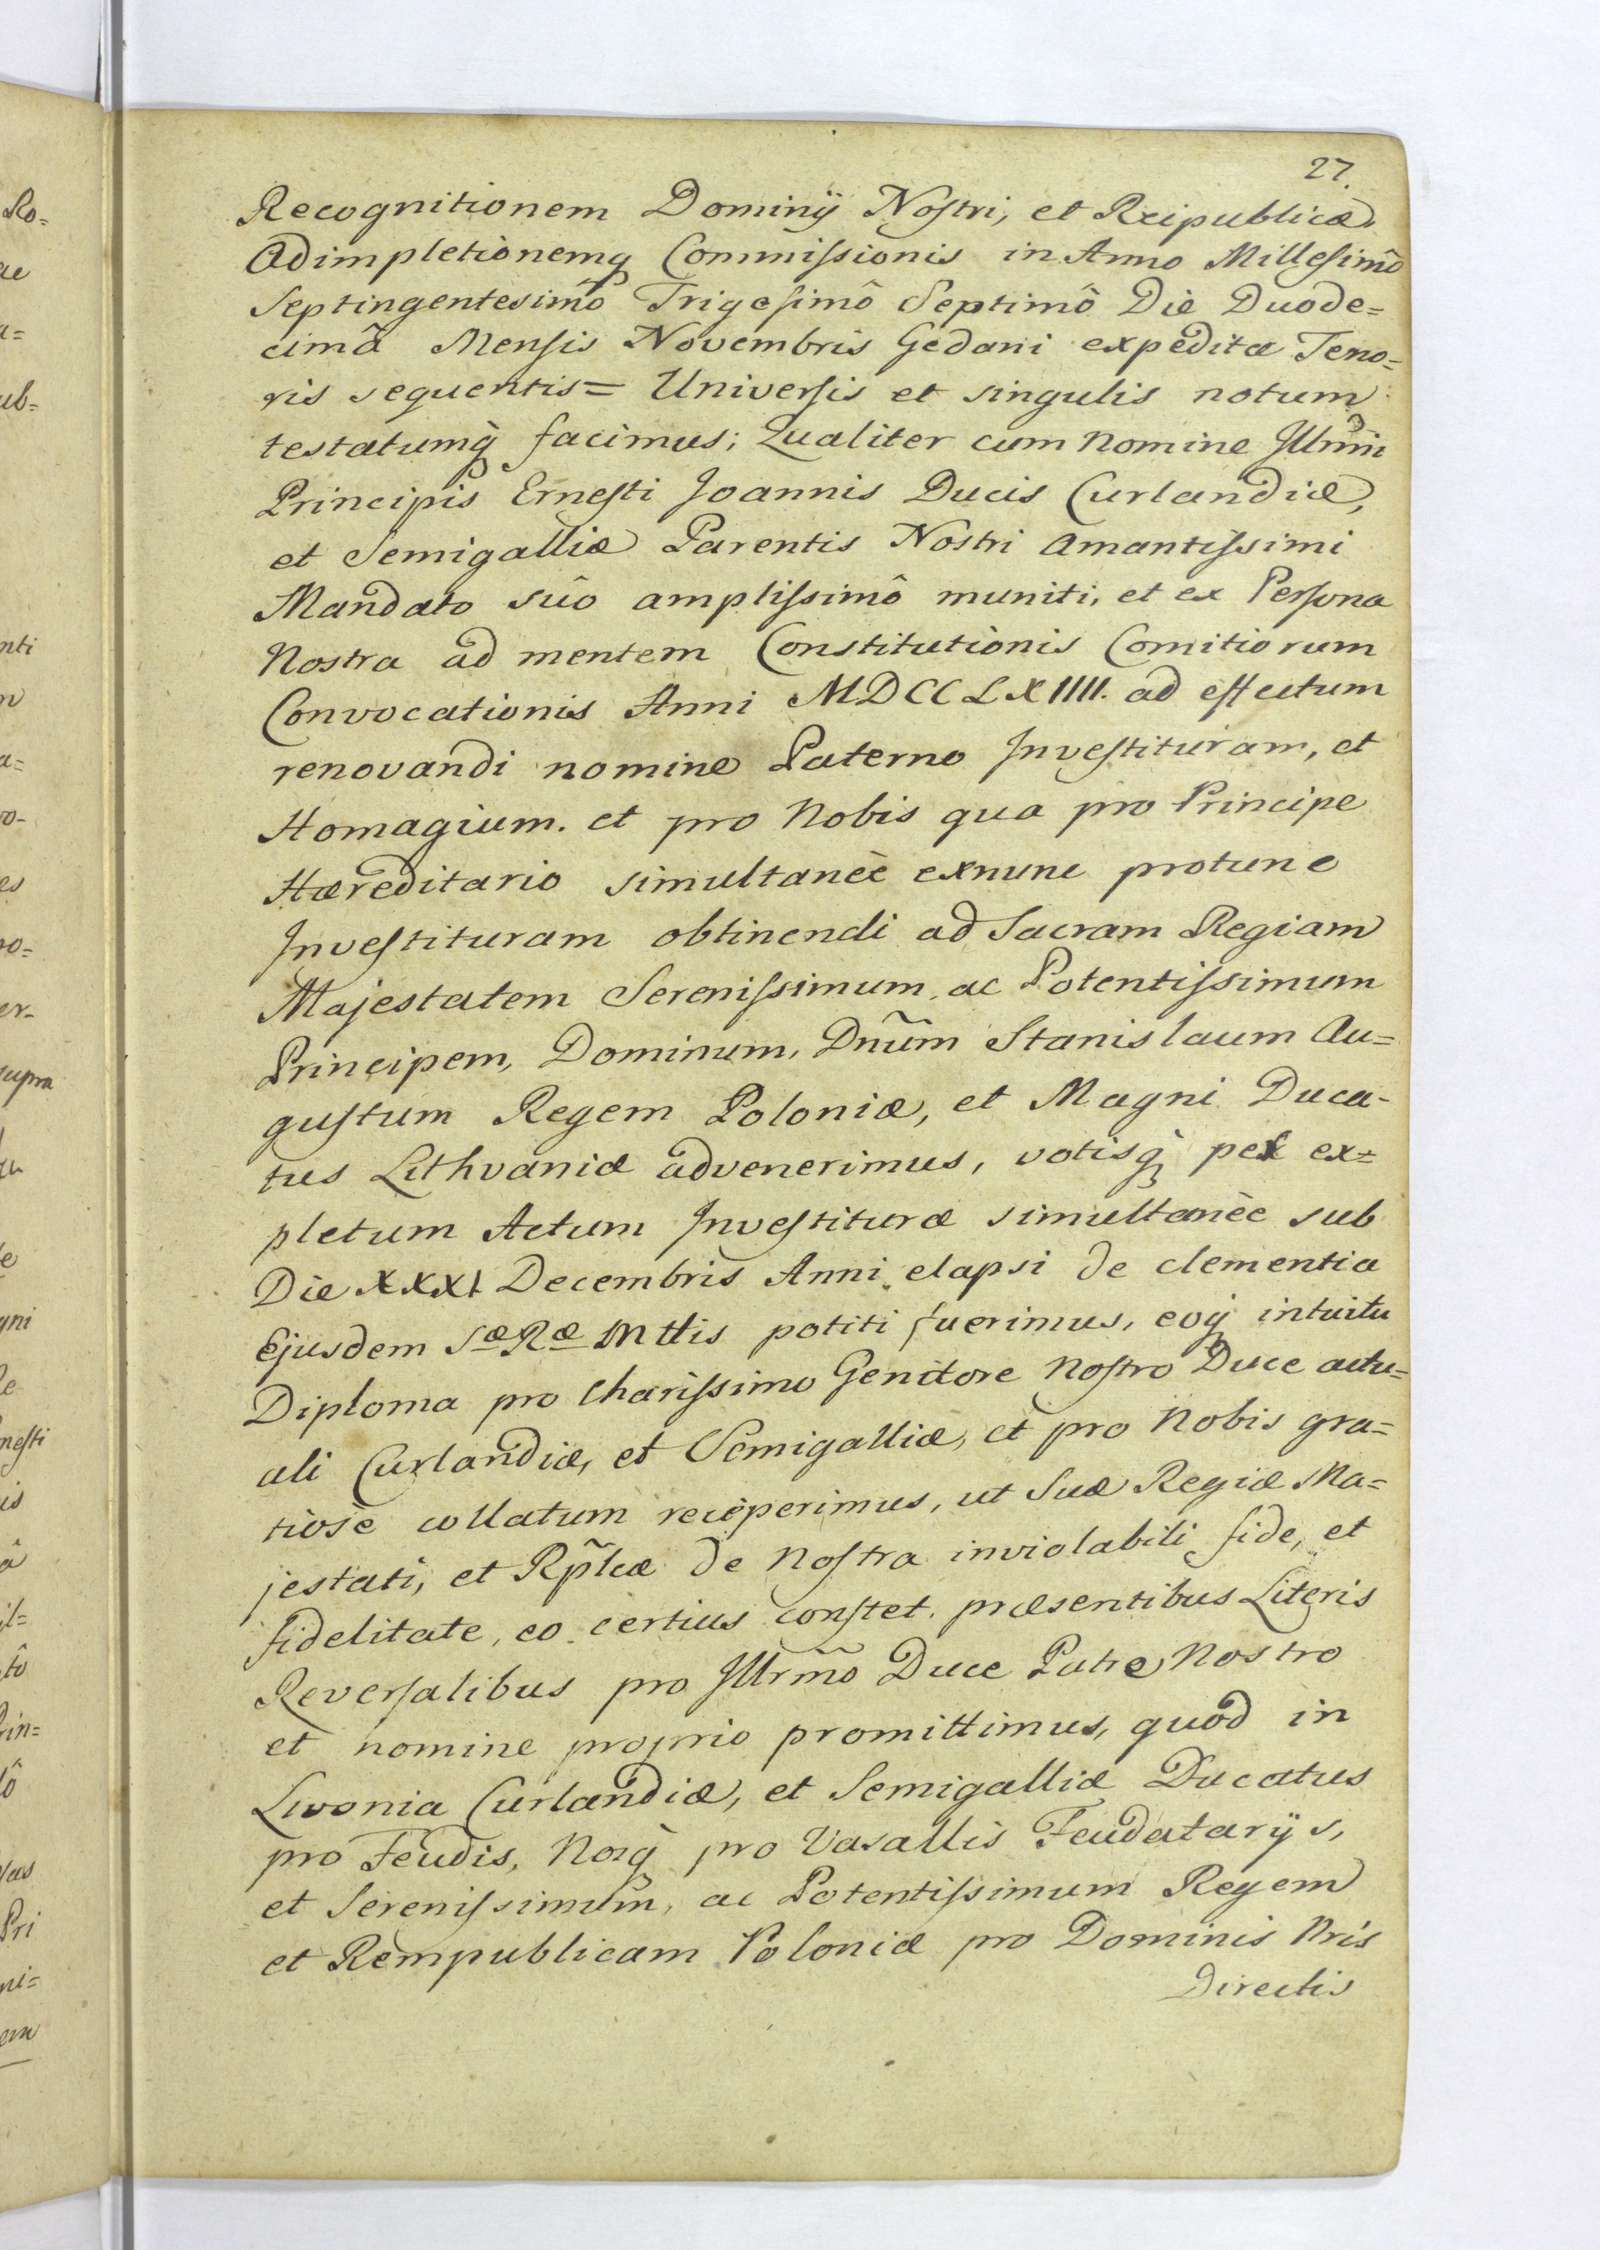 27.
Recognitionem Dominÿ Nostri, et Reipublicæ
Adimpletionemq̀ Commissionis in Anno Millesimô
Septingentesimô Trigesimô Septimô Die Duode=
cimâ Mensis Novembris Gedani expedita Teno=
ris sequentis= Universis et singulis notum
testatumq̀ facimus; Qualiter cum nomine Illrm̃i
Principis Ernesti Joannis Ducis Curlandiæ,
et Semigalliæ Parentis Nostri amantissimi
Mandato suô amplissimô muniti, et ex Persona
Nostra ad mentem Constitutionis Comitiorum
Convocationis Anni MDCCLXIIII. ad effectum
renovandi nomine Paterno Investituram, et
Homagium. et pro Nobis qua pro Principe
Hæreditario simultaneè exnunc protunc
Investituram obtinendi ad Sacram Regiam
Majestatem Serenissimum, ac Potentissimum
Principem, Dominum, Dnum̃ Stanislaum Au=
gustum Regem Poloniæ, et Magni Duca-
tus Lithvaniæ advenerimus, votisq̀ per ex=
pletum Actum Investituræ simultaneè sub
Die XXXI Decembris Anni elapsi de clementia
Ejusdem Sæ Ræ Mttis potiti fuerimus, eoq̀ intuitu
Diploma pro Charissimo Genitore Nostro Duce actu=
ali Curlandiæ, et Semigalliæ, et pro Nobis gra=
tiosè collatum receperimus, ut Suæ Regiæ Ma=
jestati, et Rp̃lcæ de Nostra inviolabili fide, et
fidelitate, eo certius constet. præsentibus Literis
Reversalibus pro Illrm̃o Duce Patre Nostro
et nomine proprio promittimus, quod in
Livonia Curlandiæ, et Semigalliæ Ducatus
pro Feudis, Nosq̀ pro Vasallis Feudatarÿs,
et Serenissimum, ac Potentissimum Regem
et Rempublicam Poloniæ pro Dominis Nris
Directis